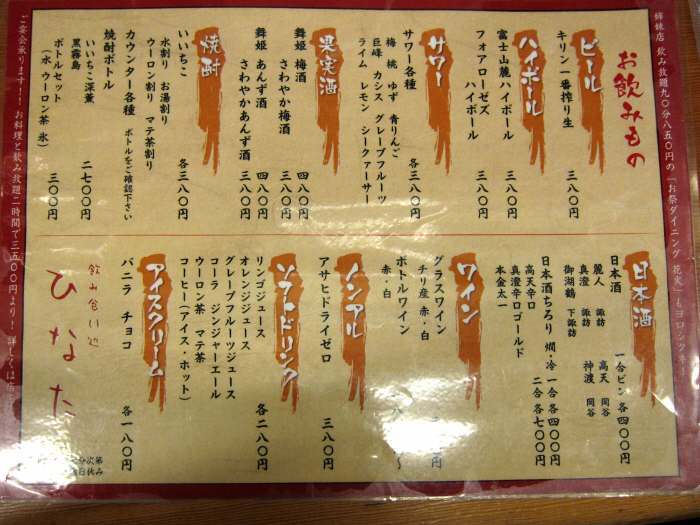 姉妹店 飲み放題九〇分八五〇円の「お祭ダイニング 花火」もヨロシクネ！
お飲みもの
ビール
キリン一番搾り生 三八〇円
ハイボール
富士山麓ハイボール 三八〇円
フォアローゼズ
ハイボール 三八〇円
サワー
サワー各種 各三八〇円
梅 桃 ゆず 青りんご
巨峰 カシス グレープフルーツ
ライム レモン シークァーサー
果実酒
舞姫 梅酒 四八〇円
さわやか梅酒 三八〇円
舞姫 あんず酒 四八〇円
さわやかあんず酒 三八〇円
焼酎
いいちこ 各三八〇円
水割り お湯割り
ウーロン割り マテ茶割り
カウンター各種 ボトルをご確認下さい
焼酎ボトル
いいちこ深薫 二七〇〇円
黒霧島
ボトルセット 三〇〇円
（水 ウーロン茶 氷）
日本酒
日本酒 一合ビン 各四〇〇円
麗人 諏訪 高天 岡谷
真澄 諏訪 神渡 岡谷
御湖鶴 下諏訪
日本酒ちろり 燗・冷 一合 各四〇〇円
二合 各七〇〇円
高天辛口
真澄辛口ゴールド
本金太一
ワイン
グラスワイン
チリ産 赤・白
ボトルワイン
赤・白
ノンアル
アサヒドライゼロ 三八〇円
ソフトドリンク
リンゴジュース 各二八〇円
オレンジジュース
グレープフルーツジュース
コーラ ジンジャーエール
ウーロン茶 マテ茶
コーヒー（アイス・ホット）
アイスクリーム
バニラ チョコ 各一八〇円
飲み食い処
ひなた
ご宴会承ります！！ お料理と飲み放題二時間で三五〇〇円より！詳しくは